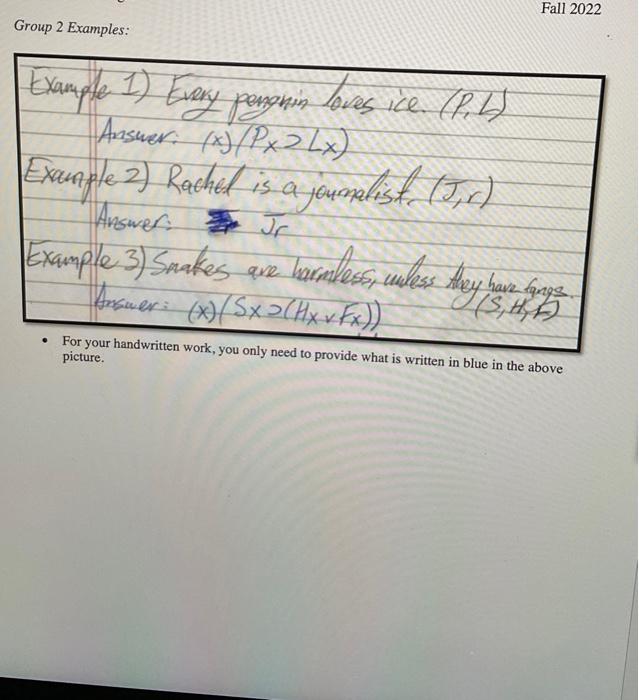 Fall 2022
Group 2 Examples:
Example 1) Every penguin loves ice. (P, L)
Answer: (x)(Px⊃Lx)
Example 2) Rachel is a journalist. (J, r)
Answer: Jr
Example 3) Snakes are harmless, unless they have fangs.
(S, H, F)
Answer: (x)(Sx⊃(Hx v Fx))
• For your handwritten work, you only need to provide what is written in blue in the above
picture.